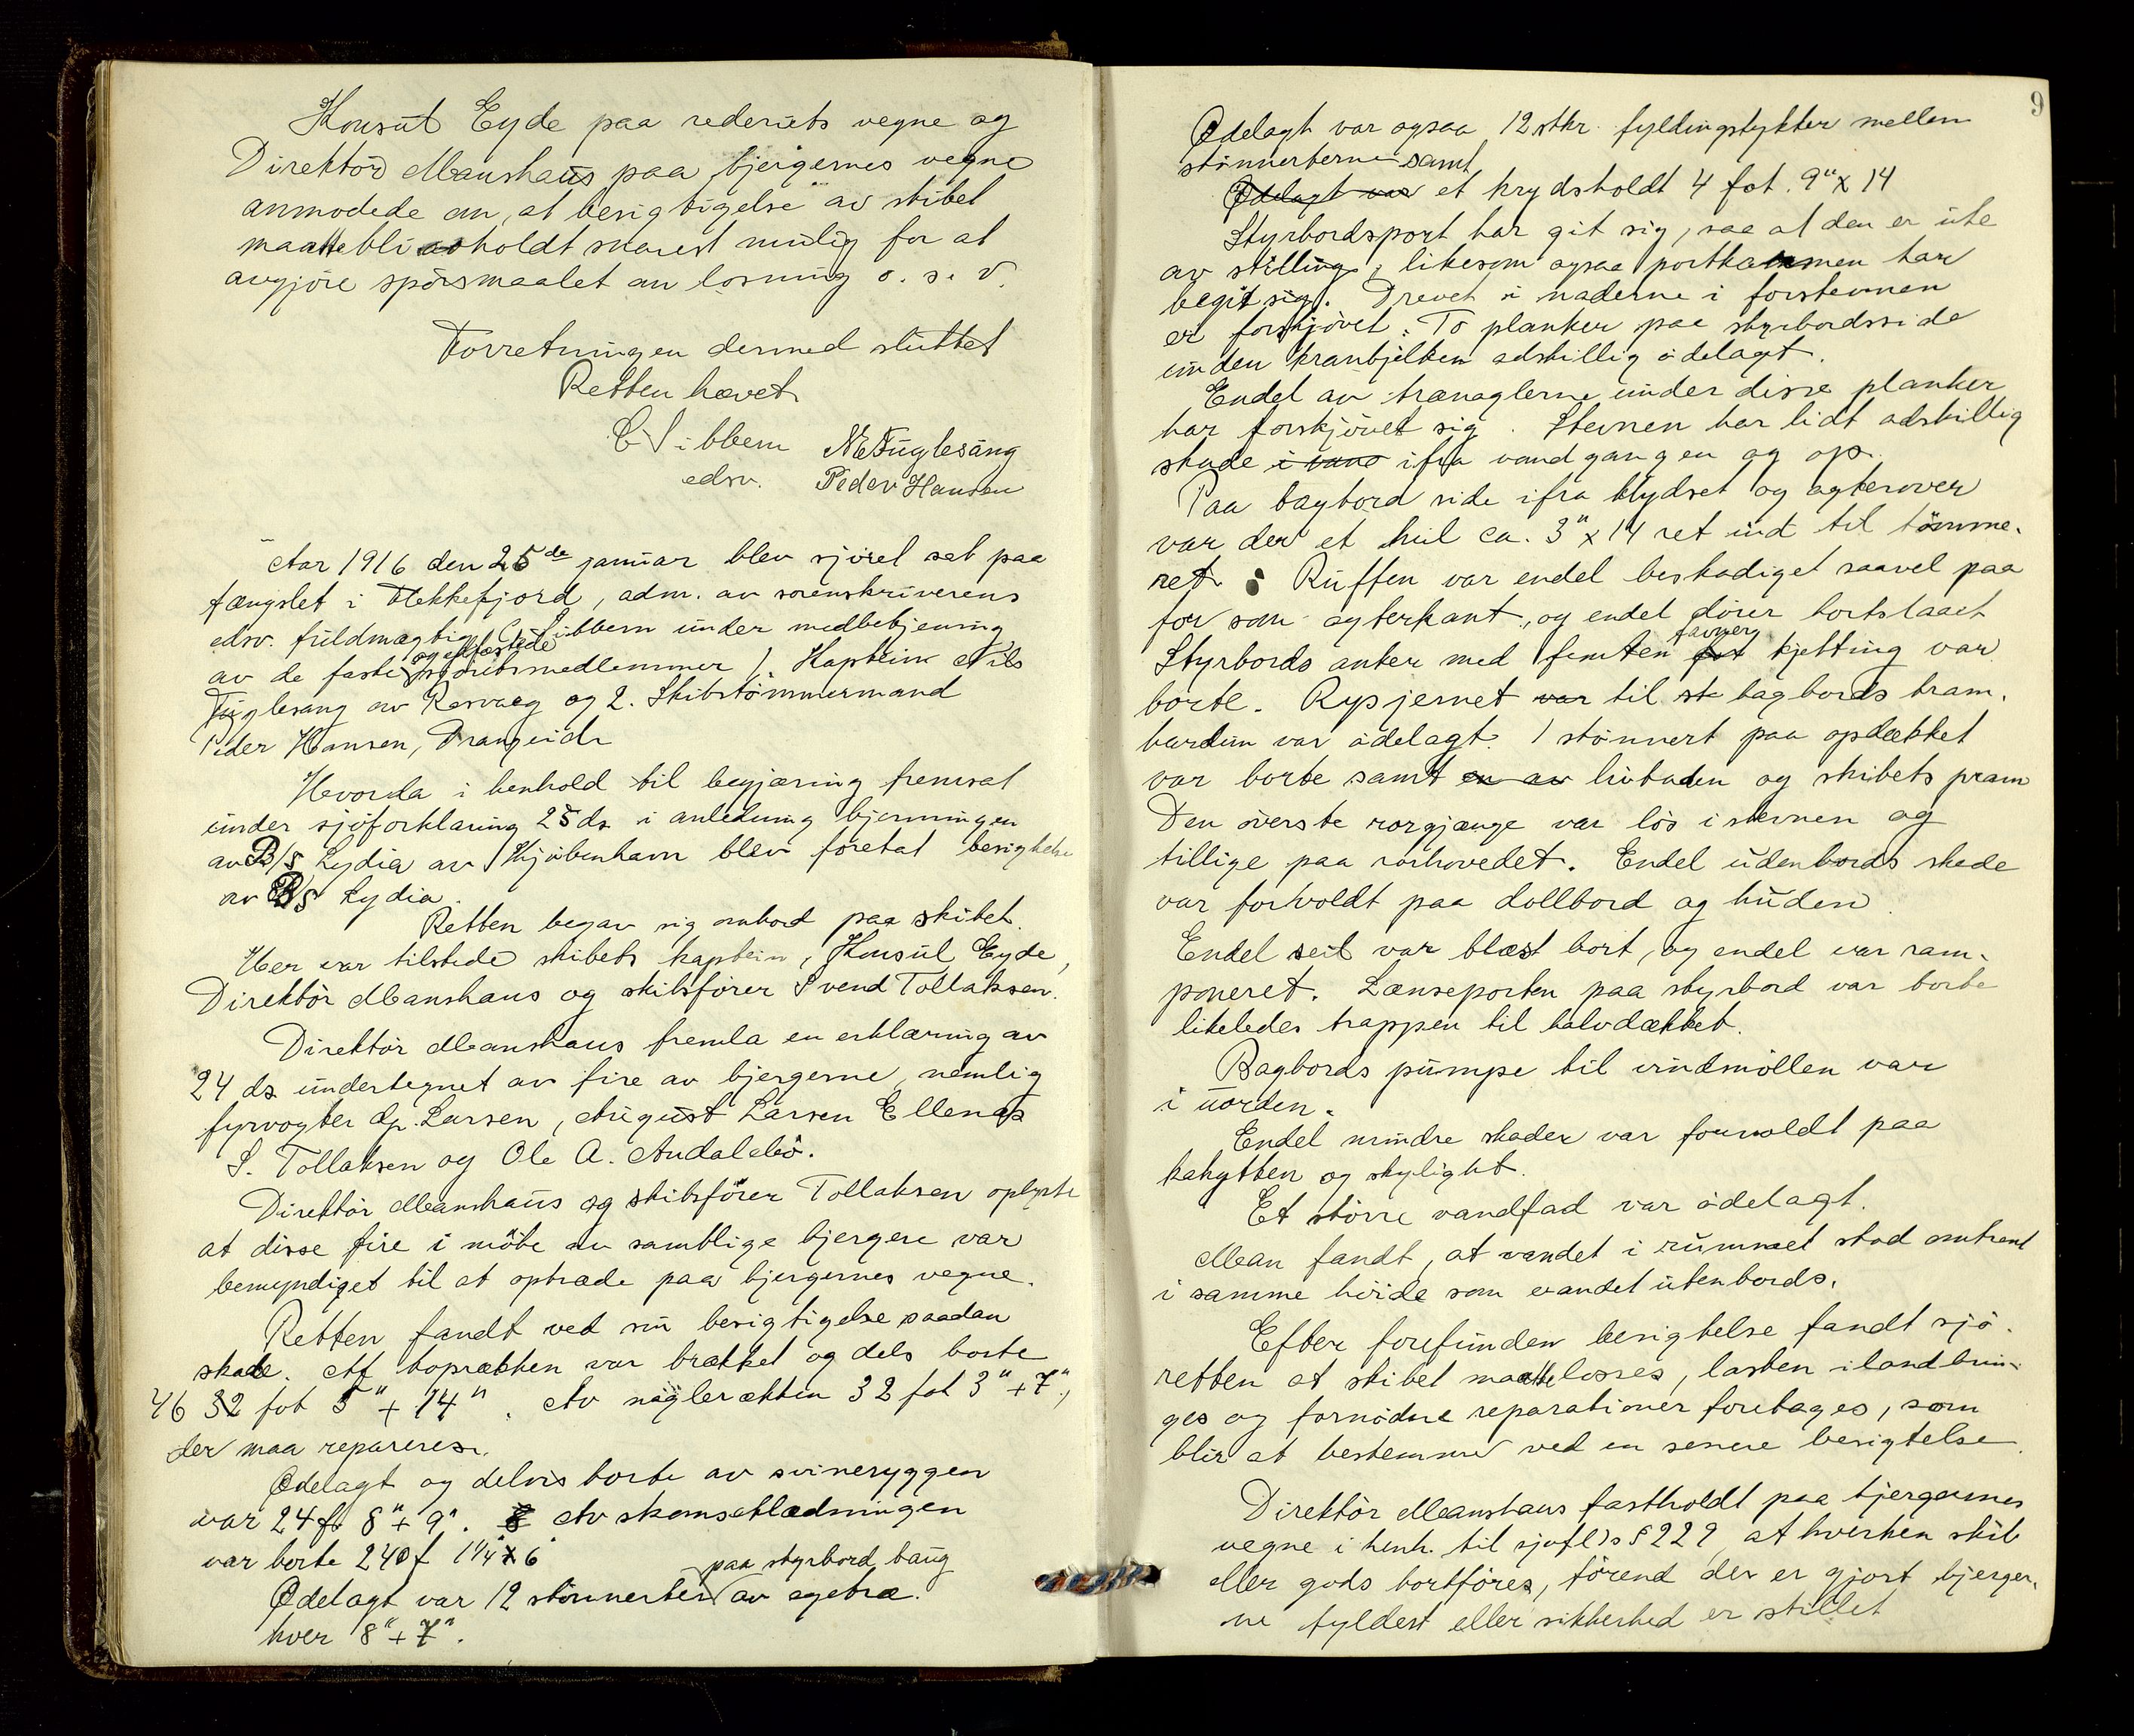 Konsul Eyde paa rederiets vegne og
Direktör Manshaus paa bjergernes vegne
anmodede om, at besigtigelse av skibet
maatte bli avholdt snarest mulig for at
avgjöre spörsmaalet om losning o. s. v.
Forretningen dermed sluttet
Retten hævet.
C Sibbern N E Fuglesang
edsv. Peder Hansen
Aar 1916 den 25de januar blev sjöret sat paa
fængslet i Flekkefjord, adm. av sorenskriverens
edsv. fuldmægtig C Sibbern under medbetjening
av de faste og edfæstede sjöretsmedlemmer 1. Kaptein Nils
Fuglesang av Rasvaag og 2. Skibstömmermand
Peder Hansen, Drangeid
Hvorda i henhold til begjæring fremsat
under sjöforklaring 25 ds i anledning bjerningen
av B/S Lydia av Kjöbenhavn blev foretat besigtelse
av B/S Lydia.
Retten begav sig ombord paa skibet.
Her var tilstede skibets kaptein, Konsul Eyde,
Direktör Manshaus og skibsförer Svend Tollaksen.
Direktör Manshaus fremla en erklæring av
24 ds undertegnet av fire av bjergerne, nemlig
fyrvogter Larsen, August Larsen Ellenæs
S. Tollaksen og Ole A. Andabelö.
Direktör Manshaus og skibsförer Tollaksen oplyste
at disse fire i möte av samtlige bjergere var
bemyndiget til at optræde paa bjergernes vegne.
Retten fandt ved sin besigtigelse saadan
skade. Af toprækken var brækket og dels borte
46 32 fot 5" + 14". Av naglerækken 32 fot 3" + 7",
der maa repareres.
Ödelagt og delvis borte av svineryggen
var 24 ft 8" + 9". 8 Av skanseklædningen
var borte 240 f 1 1/4 x 6"
Ödelagt var 12 stönnerter paa styrbord baug av egetræ.
hver 8" + 7".
9
Ödelagt var ogsaa 12 stkr. fyldingstykker mellem
stönnerterne samt
Ödelagt var et krydsholdt 4 fot. 9" x 14
Styrbordsport har git sig, saa at den er ute
av stilling, likesom ogsaa portkarmen har
begit sig. Drevet i naderne i forstevnen
er forskjövet. To planker paa styrbordsside
under kranbjelken adskillig ödelagt.
Endel av trænaglerne under disse planker
har forskjövet sig. Stevnen har lidt adskillig
skade i vand ifra vandgangen og op.
Paa bagbord side ifra klydset og agterover
var der et hul ca. 3" x 14 ret ind til tömme-
ret. Ruffen var endel beskadiget saavel paa
for som agterkant, og endel dörer bortslaaet
Styrbords anker med femten fot favner kjetting var
borte. Rypsjernet var til st bagbords bram-
bardun var ödelagt. 1 stönnert paa opdækket
var borte samt en av livbaden og skibets pram
Den överste rorgjænge var lös i stevnen og
tillige paa rorhovedet. Endel udenbords skade
var forvoldt paa dollbord og huden.
Endel seil var blæst bort, og endel var ram-
poneret. Lænseporten paa styrbord var borte
likeledes trappen til halvdækket.
Bagbords pumpe til vindmöllen var
i uorden.
Endel mindre skader var forvoldt paa
kahytten og skylight.
Et större vandfad var ödelagt.
Man fandt, at vandet i rummet stod omtrent
i samme höide som vandet utenbords.
Efter forefunden besigtelse fandt sjö-
retten at skibet maatte losses, lasten ilandbrin-
ges og fornödne reparationer foretages, som
blir at bestemme ved en senere besigtelse.
Direktör Manshaus fastholdt paa bjergernes
vegne i henh. til sjöfl)s § 229, at hverken skib
eller gods bortföres, förend der er gjort bjerger-
ne fyldest eller sikkerhed er stillet